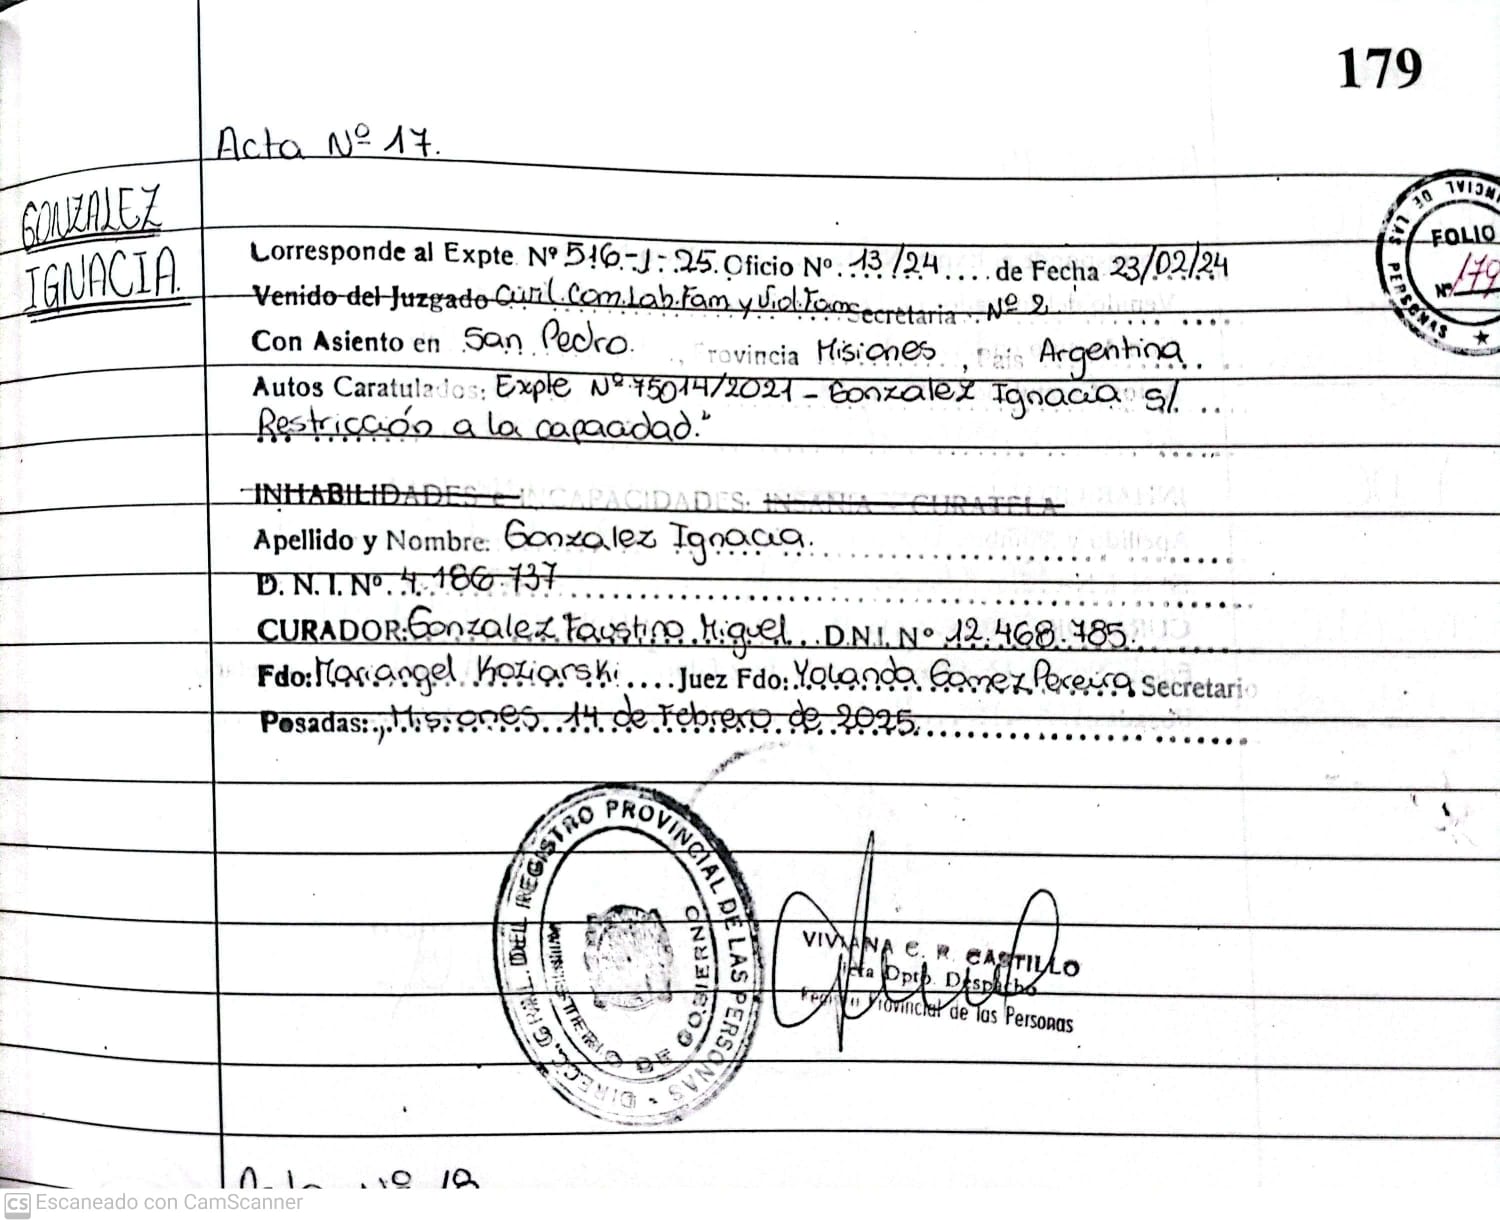 179
Acta Nº 17.
GONZALEZ
IGNACIA.
Corresponde al Expte Nº 516-J-25. Oficio Nº 13/24 .... de Fecha 23/02/24
Venido del Juzgado Civil.Com.Lab.Fam y Viol.Fam Secretaria Nº 2
Con Asiento en San Pedro. Provincia Misiones, País Argentina.
Autos Caratulados: Expte Nº 75014/2021 - Gonzalez Ignacia s/
Restricción a la capacidad."
INHABILIDADES e INCAPACIDADES: INSANIA - CURATELA
Apellido y Nombre: Gonzalez Ignacia.
D. N. I. Nº 4.186.737
CURADOR: Gonzalez Faustino Miguel... D.N.I. Nº 12.468.785.
Fdo: Mariangel Koziarski .... Juez Fdo: Yolanda Gomez Pereira Secretario
Posadas:., Misiones 14 de Febrero de 2025.
FOLIO
Nº 179
PERSONAS
DE LAS
DIREC. GRAL. DEL REGISTRO PROVINCIAL DE LAS PERSONAS
MINISTERIO DE GOBIERNO
VIVIANA C. R. CASTILLO
Jefa Dpto. Despacho
Registro Provincial de las Personas
CS Escaneado con CamScanner